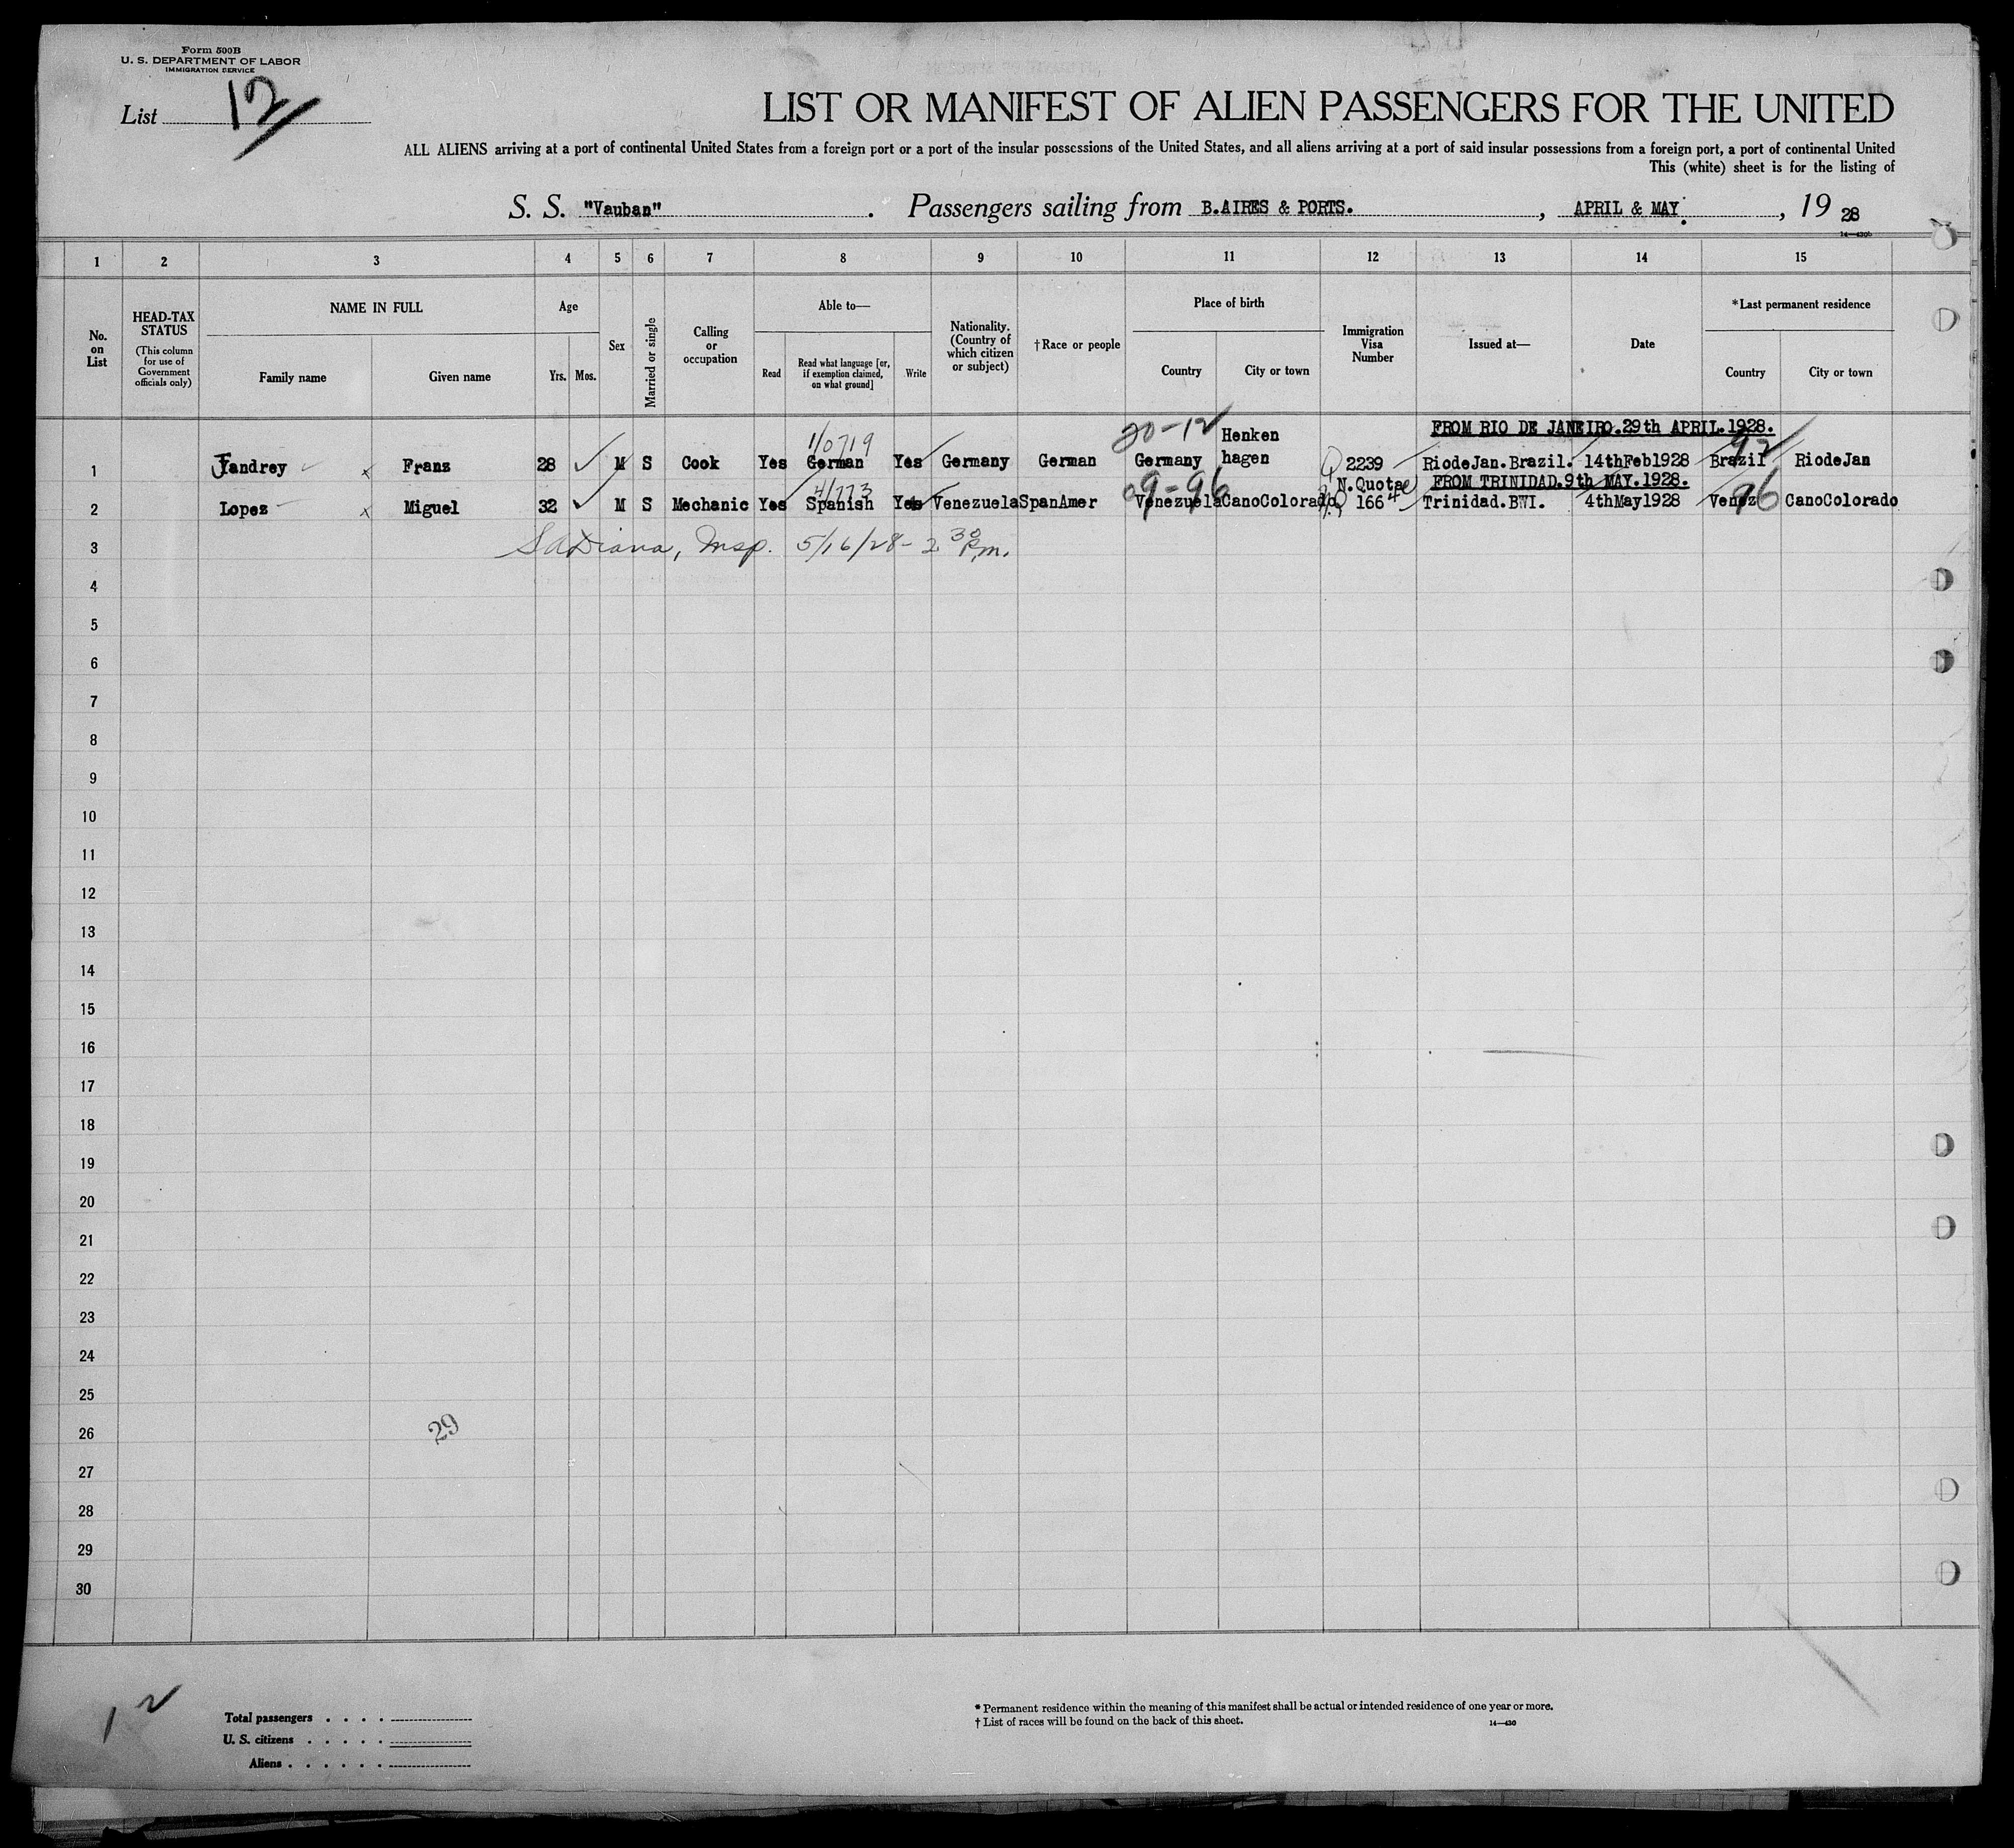 Form 500B
U. S. DEPARTMENT OF LABOR
IMMIGRATION SERVICE
List 12
LIST OR MANIFEST OF ALIEN PASSENGERS FOR THE UNITED
ALL ALIENS arriving at a port of continental United States from a foreign port or a port of the insular possessions of the United States, and all aliens arriving at a port of said insular possessions from a foreign port, a port of continental United
This (white) sheet is for the listing of
S. S. "Vauban". Passengers sailing from B.AIRES & PORTS., APRIL & MAY., 19 28
14—430b
1 2 3 4 5 6 7 8 9 10 11 12 13 14 15
No. on List
HEAD-TAX STATUS
(This column for use of Government officials only)
NAME IN FULL
Family name Given name
Age
Yrs. Mos.
Sex
Married or single
Calling or occupation
Able to—
Read
Read what language [or, if exemption claimed, on what ground]
Write
Nationality. (Country of which citizen or subject)
†Race or people
Place of birth
Country City or town
Immigration Visa Number
Issued at—
Date
*Last permanent residence
Country City or town
FROM RIO DE JANEIRO.29th APRIL.1928.
1/0719 20-12 92
1 Jandrey x Franz 28 M S Cook Yes German Yes Germany German Germany Henken hagen Q 2239 RiodeJan.Brazil. 14thFeb1928 Brazil RiodeJan
N.Quota FROM TRINIDAD.9th MAY.1928.
4/773 09-96 96
2 Lopez x Miguel 32 M S Mechanic Yes Spanish Yes Venezuela SpanAmer Venezuela CanoColorado 166 Trinidad.BWI. 4thMay1928 Venez CanoColorado
3 Insp. 5/16/28- 2 30 P.m.
4
5
6
7
8
9
10
11
12
13
14
15
16
17
18
19
20
21
22
23
24
25
26
29
27
28
29
30
12
Total passengers
U. S. citizens
Aliens
* Permanent residence within the meaning of this manifest shall be actual or intended residence of one year or more.
† List of races will be found on the back of this sheet.
14—430